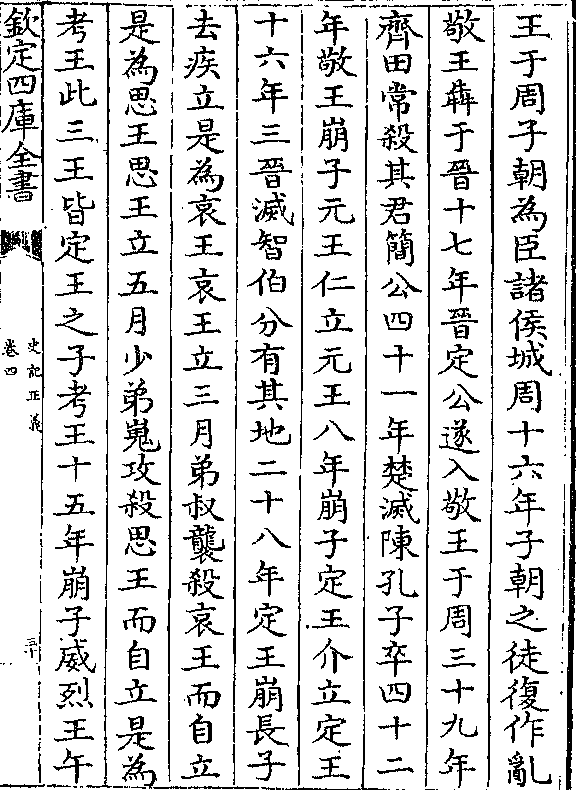 王于周子朝為臣諸侯城周十六年子朝之徒復作亂
敬王犇于晉十七年晉定公遂入敬王于周三十九年
齊田常殺其君簡公四十一年楚滅陳孔子卒四十二
年敬王崩子元王仁立元王八年崩子定王介立定王
十六年三晉滅智伯分有其地二十八年定王崩長子
去疾立是為哀王哀王立三月弟叔襲殺哀王而自立
是為思王思王立五月少弟嵬攻殺思王而自立是為
考王此三王皆定王之子考王十五年崩子威烈王午
欽定四庫全書
史記正義
卷四
三十